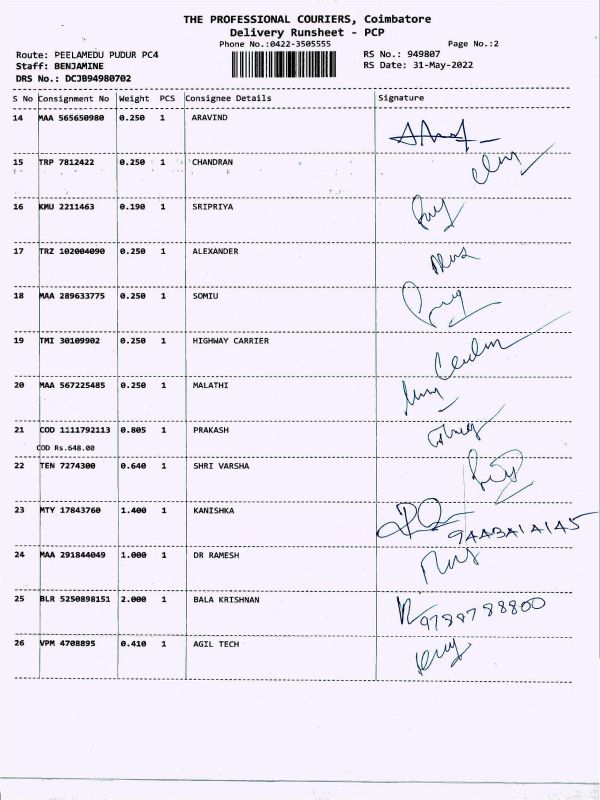 THE PROFESSIONAL COURIERS, Coimbatore
Delivery Runsheet - PCP
Phone No.:0422-3505555
Page No.:2
Route: PEELAMEDU PUDUR PC4
RS No.: 949807
Staff: BENJAMINE
RS Date: 31-May-2022
DRS No.: DCJB94980702
S No Consignment No Weight PCS Consignee Details Signature
14 MAA 565650980 0.250 1 ARAVIND
15 TRP 7812422 0.250 1 CHANDRAN
16 KMU 2211463 0.190 1 SRIPRIYA
17 TRZ 102004090 0.250 1 ALEXANDER
18 MAA 289633775 0.250 1 SOMIU
19 TMI 30109902 0.250 1 HIGHWAY CARRIER
20 MAA 567225485 0.250 1 MALATHI
21 COD 1111792113 0.805 1 PRAKASH
COD Rs.648.00
22 TEN 7274300 0.640 1 SHRI VARSHA
23 MTY 17843760 1.400 1 KANISHKA
24 MAA 291844049 1.000 1 DR RAMESH
25 BLR 5250898151 2.000 1 BALA KRISHNAN 9788788800
26 VPM 4708895 0.410 1 AGIL TECH